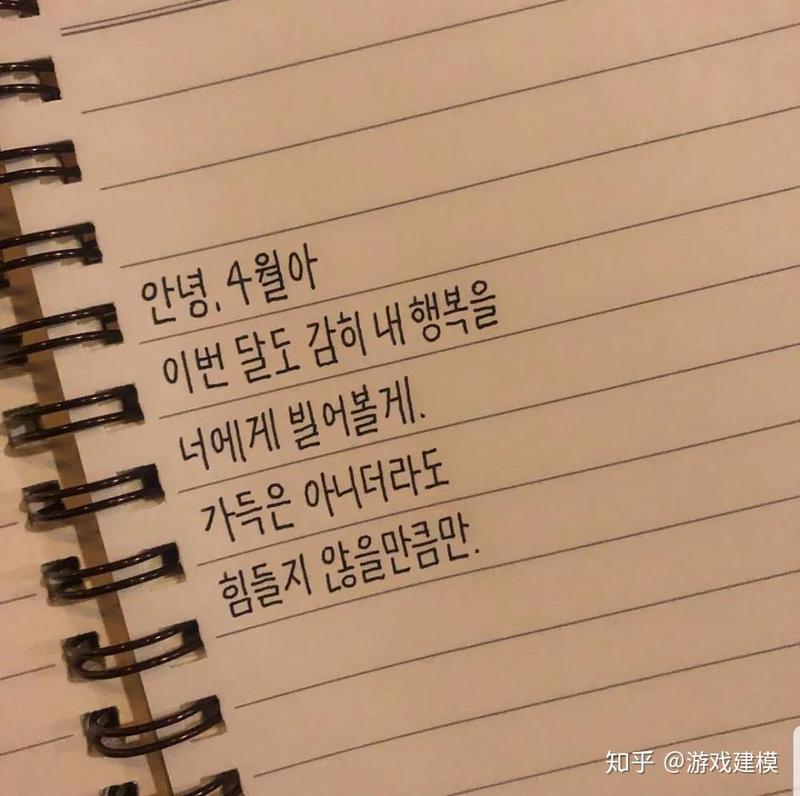 안녕, 4월아
이번 달도 감히 내 행복을
너에게 빌어볼게.
가득은 아니더라도
힘들지 않을만큼만.
知乎 @游戏建模